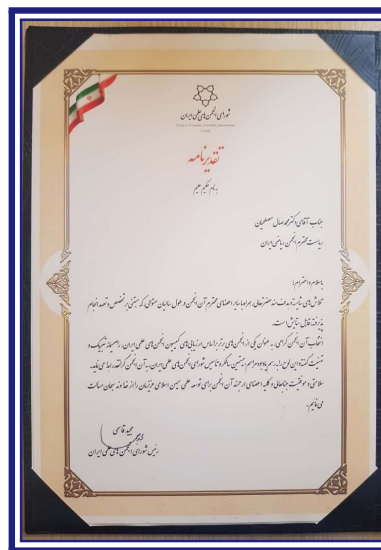 شورای انجمن‌های علمی ایران
تقدیرنامه
به نام حکیم علیم
جناب آقای دکتر محمد صال مصلحیان
ریاست محترم انجمن ریاضی ایران
با سلام و احترام؛
تلاش‌های شایسته و هدفمند حضرتعالی، همراه با سایر اعضای محترم آن انجمن در طول سالیان متوالی، که مبتنی بر تخصص و تعهد انجام
پذیرفته قابل ستایش است.
انتخاب آن انجمن گرامی، به عنوان یکی از انجمن‌های برتر بر اساس ارزیابی‌های کمیسیون انجمن‌های علمی ایران، را صمیمانه تبریک و
تهنیت گفته و این لوح را به رسم یادبود مراسم بیستمین سالگرد تاسیس شورای انجمن‌های علمی ایران، به آن انجمن گرانقدر اهدا می‌نماید.
سلامتی و موفقیت جنابعالی و کلیه اعضای ارجمند آن انجمن برای توسعه علمی میهن اسلامی عزیزمان را از خداوند سبحان مسالت
می‌نماییم.
مجید قاسمی
رئیس شورای انجمن‌های علمی ایران